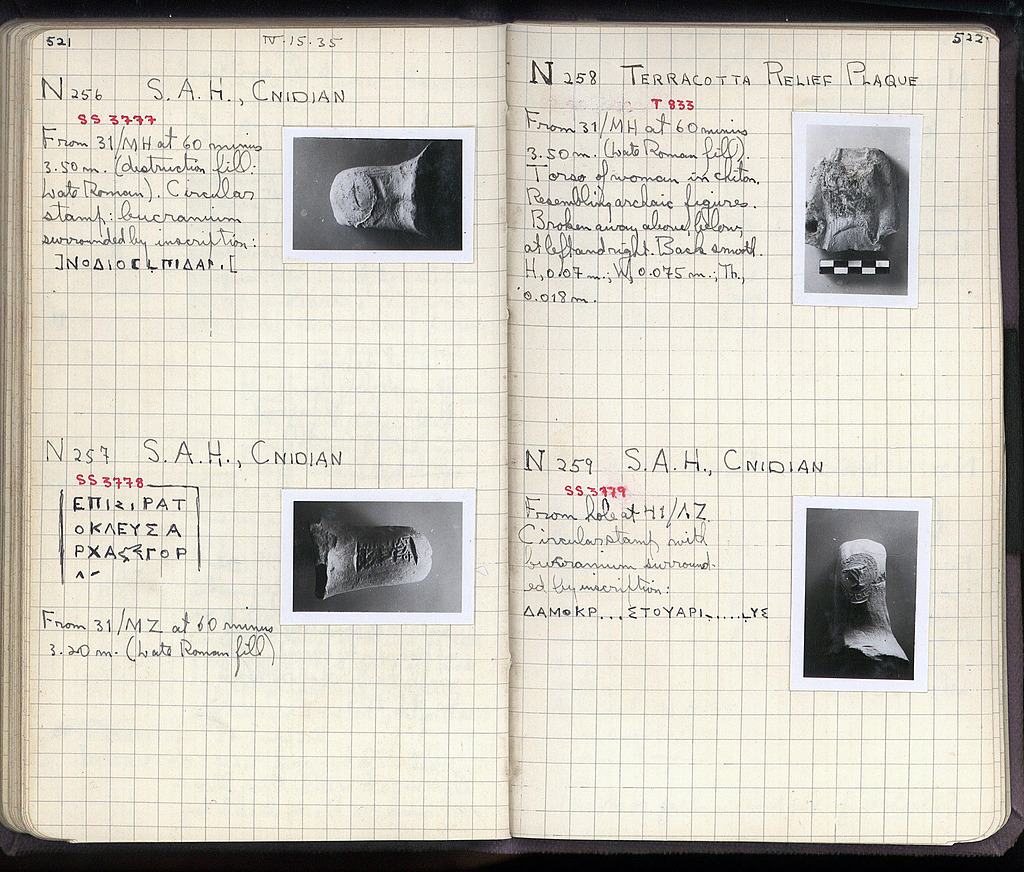 521
IV.15.35
N 256 S.A.H., CNIDIAN
SS 3777
From 31/MH at 60 minus
3.50 m. (destruction fill:
Late Roman). Circular
stamp: bucranium
surrounded by inscription:
N 257 S.A.H., CNIDIAN
SS 3778
ΟΚΛΕΥΣΑ
From 31/MZ at 60 minus
3.20 m. (Late Roman fill)
522
N 258 TERRACOTTA RELIEF PLAQUE
T 833
From 31/MH at 60 minus
3.50 m. (Late Roman fill).
Torso of woman in chiton.
Resembling archaic figures.
Broken away above, below,
at left and right. Back smooth.
H., 0.07 m.; W., 0.075 m.; Th.,
0.018 m.
N 259 S.A.H., CNIDIAN
SS 3779
From hole at 41/ΛΖ.
Circular stamp with
bucranium surround-
ed by inscription:
ΔΑΜΟΚΡ...ΣΤΟΥΑΡΙ